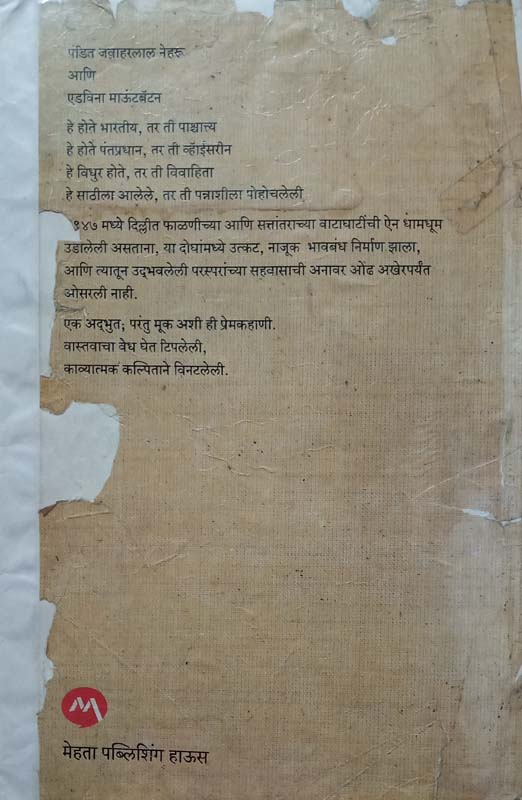 पंडित जवाहरलाल नेहरू
आणि
एडविना माऊंटबॅटन
हे होते भारतीय, तर ती पाश्चात्त्य
हे होते पंतप्रधान, तर ती व्हॅाइसरीन
हे विधुर होते, तर ती विवाहिता
हे साठीला आलेले, तर ती पन्नाशीला पोहोचलेली
१९४७ मध्ये दिल्लीत फाळणीच्या आणि सत्तांतराच्या वाटाघाटींची ऐन धामधूम
उडालेली असताना, या दोघांमध्ये उत्कट, नाजूक भावबंध निर्माण झाला,
आणि त्यातून उद्‌भवलेली परस्परांच्या सहवासाची अनावर ओढ अखेरपर्यंत
ओसरली नाही.
एक अद्‌भुत; परंतु मूक अशी ही प्रेमकहाणी.
वास्तवाचा वेध घेत टिपलेली,
काव्यात्मक कल्पिताने विनटलेली.
मेहता पब्लिशिंग हाऊस